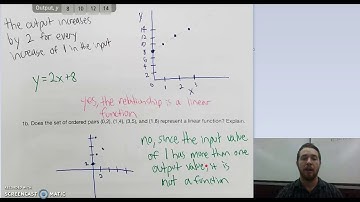 Output, y 8 10 12 14
the output increases
by 2 for every
increase of 1 in the input
y=2x+8
y
14
12
10
8
6
4
2
0 1 2 x
yes, the relationship is a linear
function
1b. Does the set of ordered pairs (0,2), (1,4), (3,5), and (1,8) represent a linear function? Explain.
no, since the input value
of 1 has more than one
output value, it is
not a function
2
2
SCREENCAST MATIC